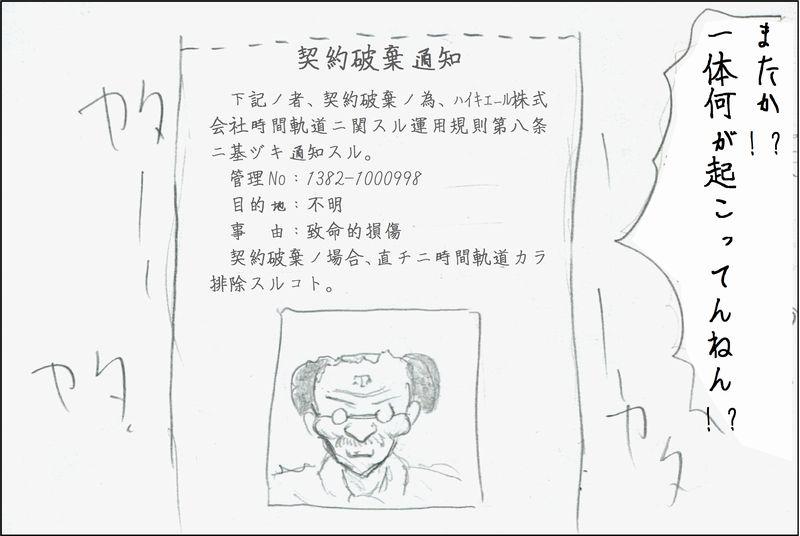 またか!?
一体何が起こってんねん!?
契約破棄通知
下記ノ者、契約破棄ノ為、ﾊｲｷｴｰﾙ株式
会社時間軌道ニ関スル運用規則第八条
ニ基ヅキ通知スル。
管理No：1382-1000998
目的地：不明
事　由：致命的損傷
契約破棄ノ場合、直チニ時間軌道カラ
排除スルコト。
カタ
カタ
カタ